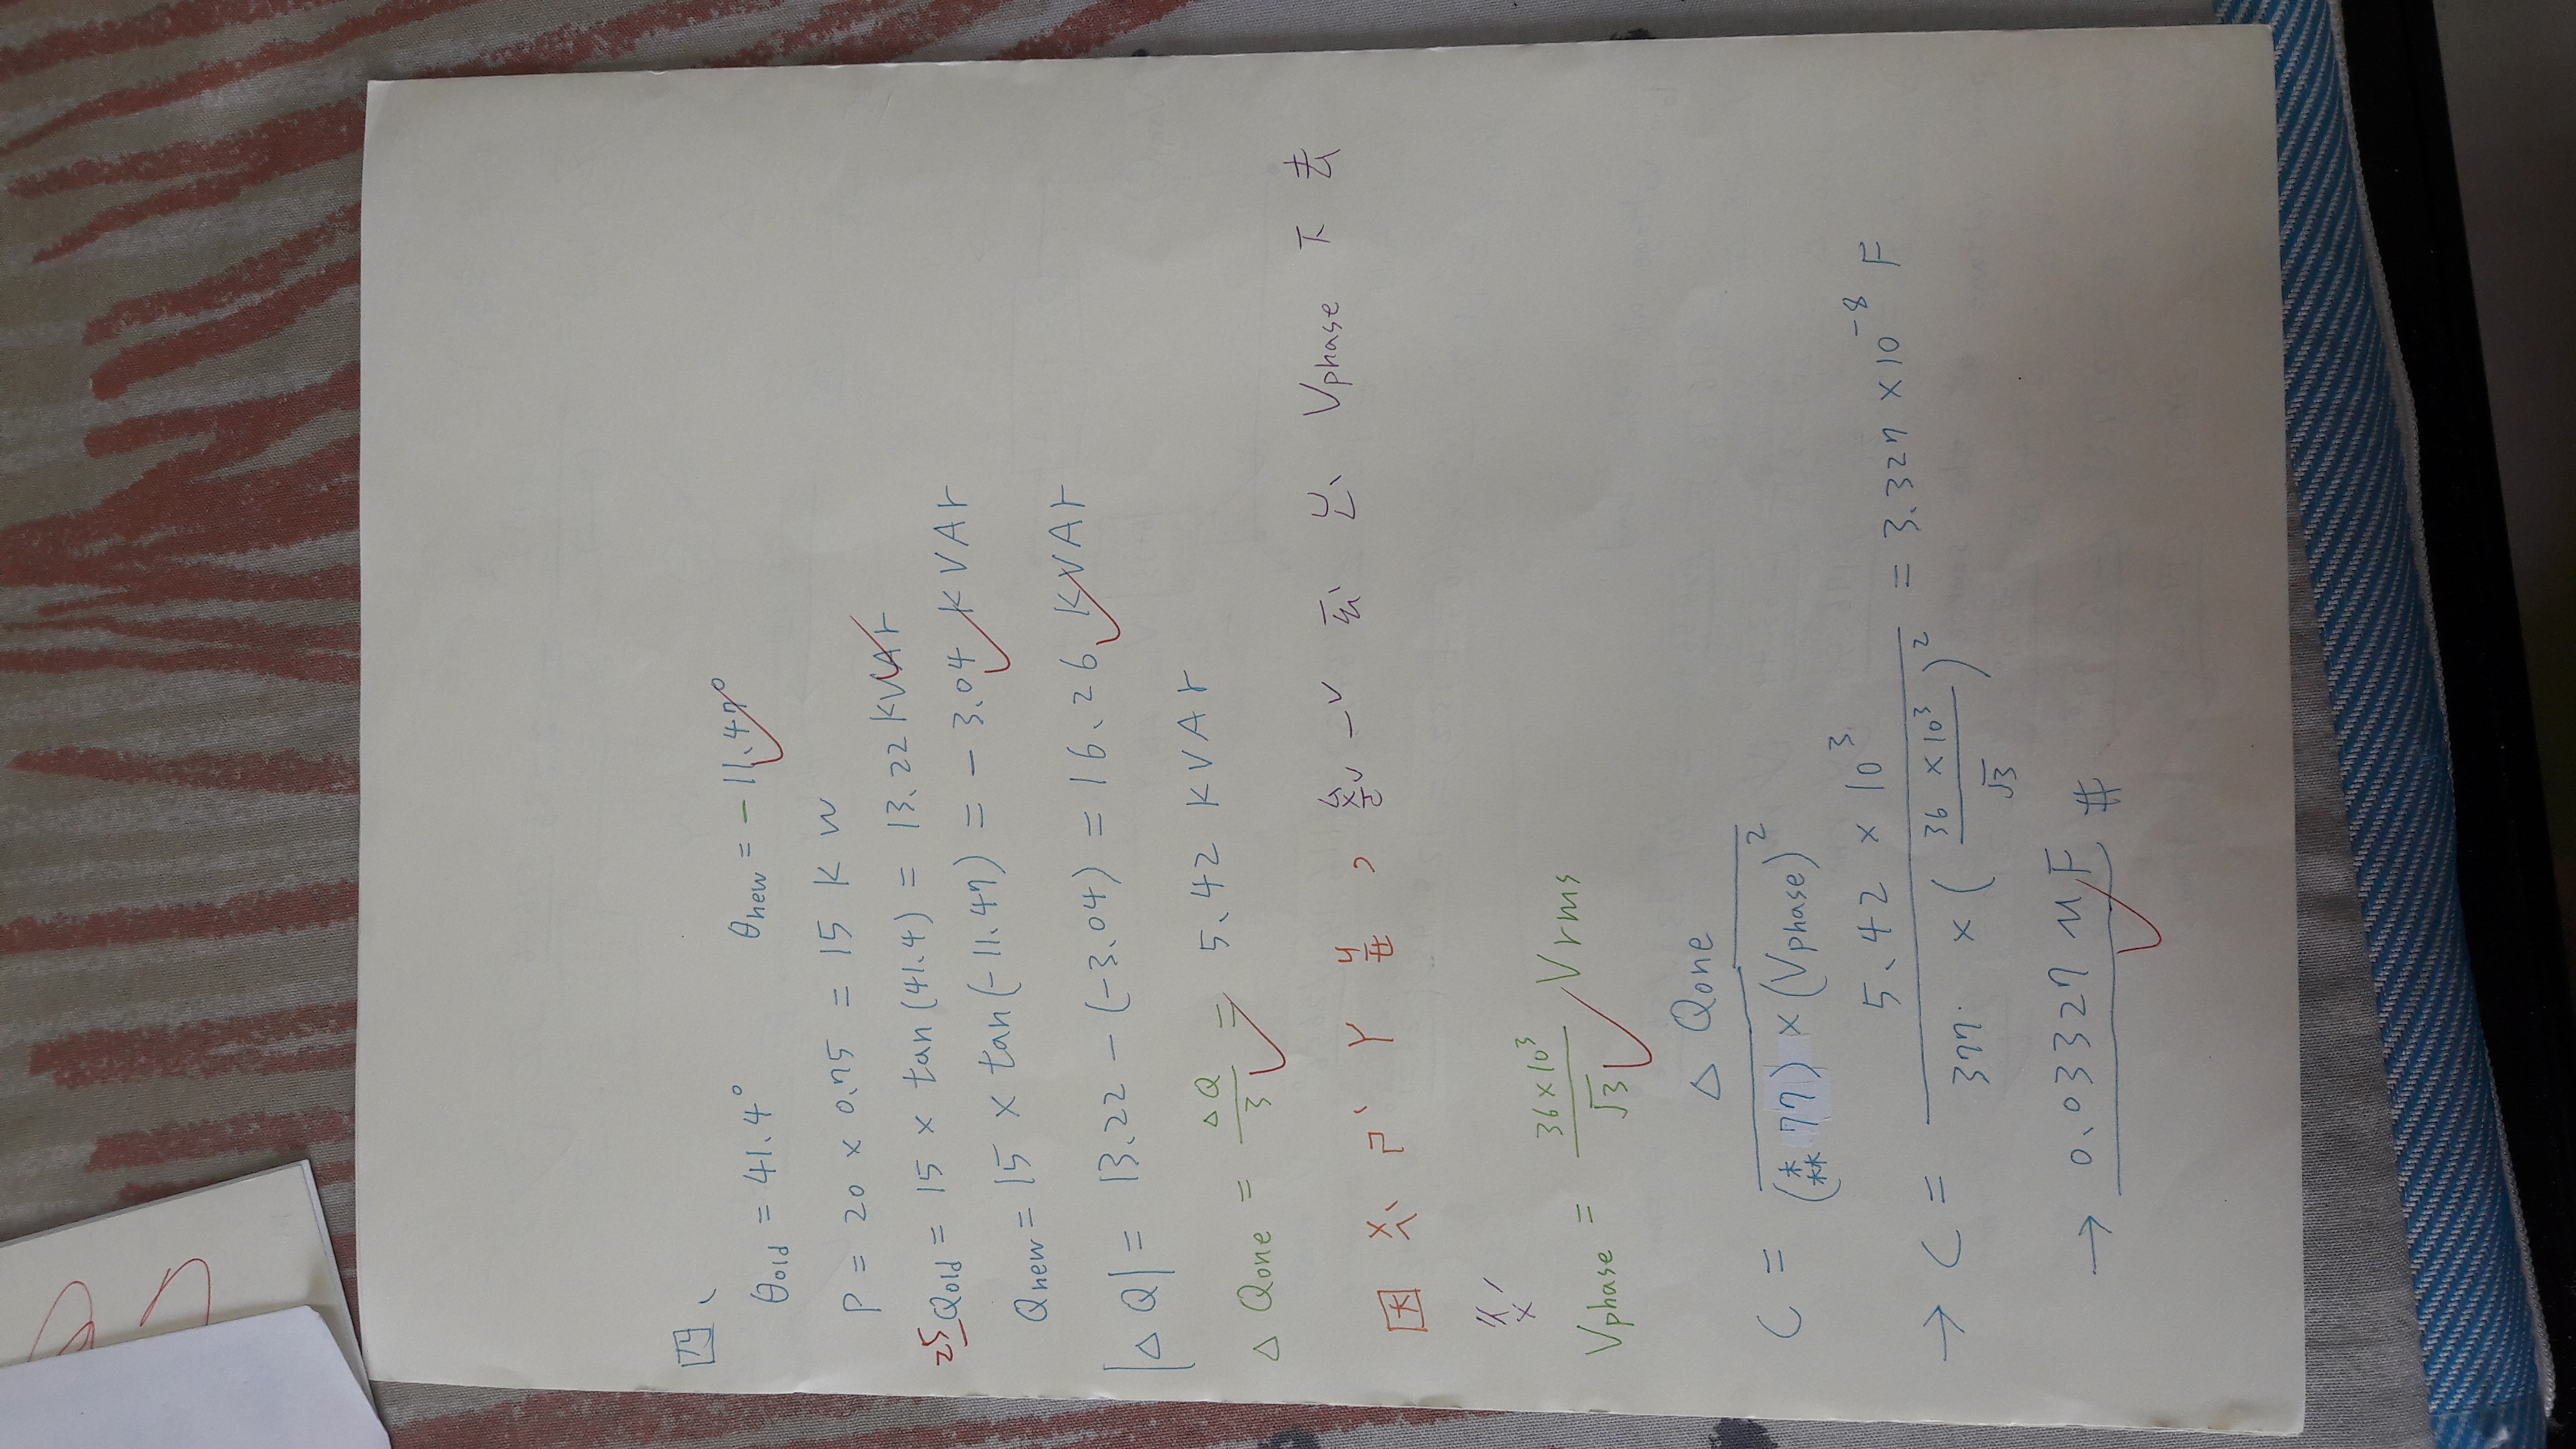 四、
θold = 41.4° θnew = -11.47°
P = 20 × 0.75 = 15 K W
25 Qold = 15 × tan(41.4) = 13.22 KVAr
Qnew = 15 × tan(-11.47) = - 3.04 KVAr
|△Q| = 13.22 - (-3.04) = 16.26 KVAr
△ Qone = △Q / 3 = 5.42 KVAr
因 Y , Vphase 下去
Vphase = 36×10³ / √3 Vrms
C = △ Qone / (77) × (Vphase)²
→ C = 5.42 × 10³ / 377 × (36 × 10³ / √3)² = 3.327 × 10⁻⁸ F
→ 0.03327 μF #